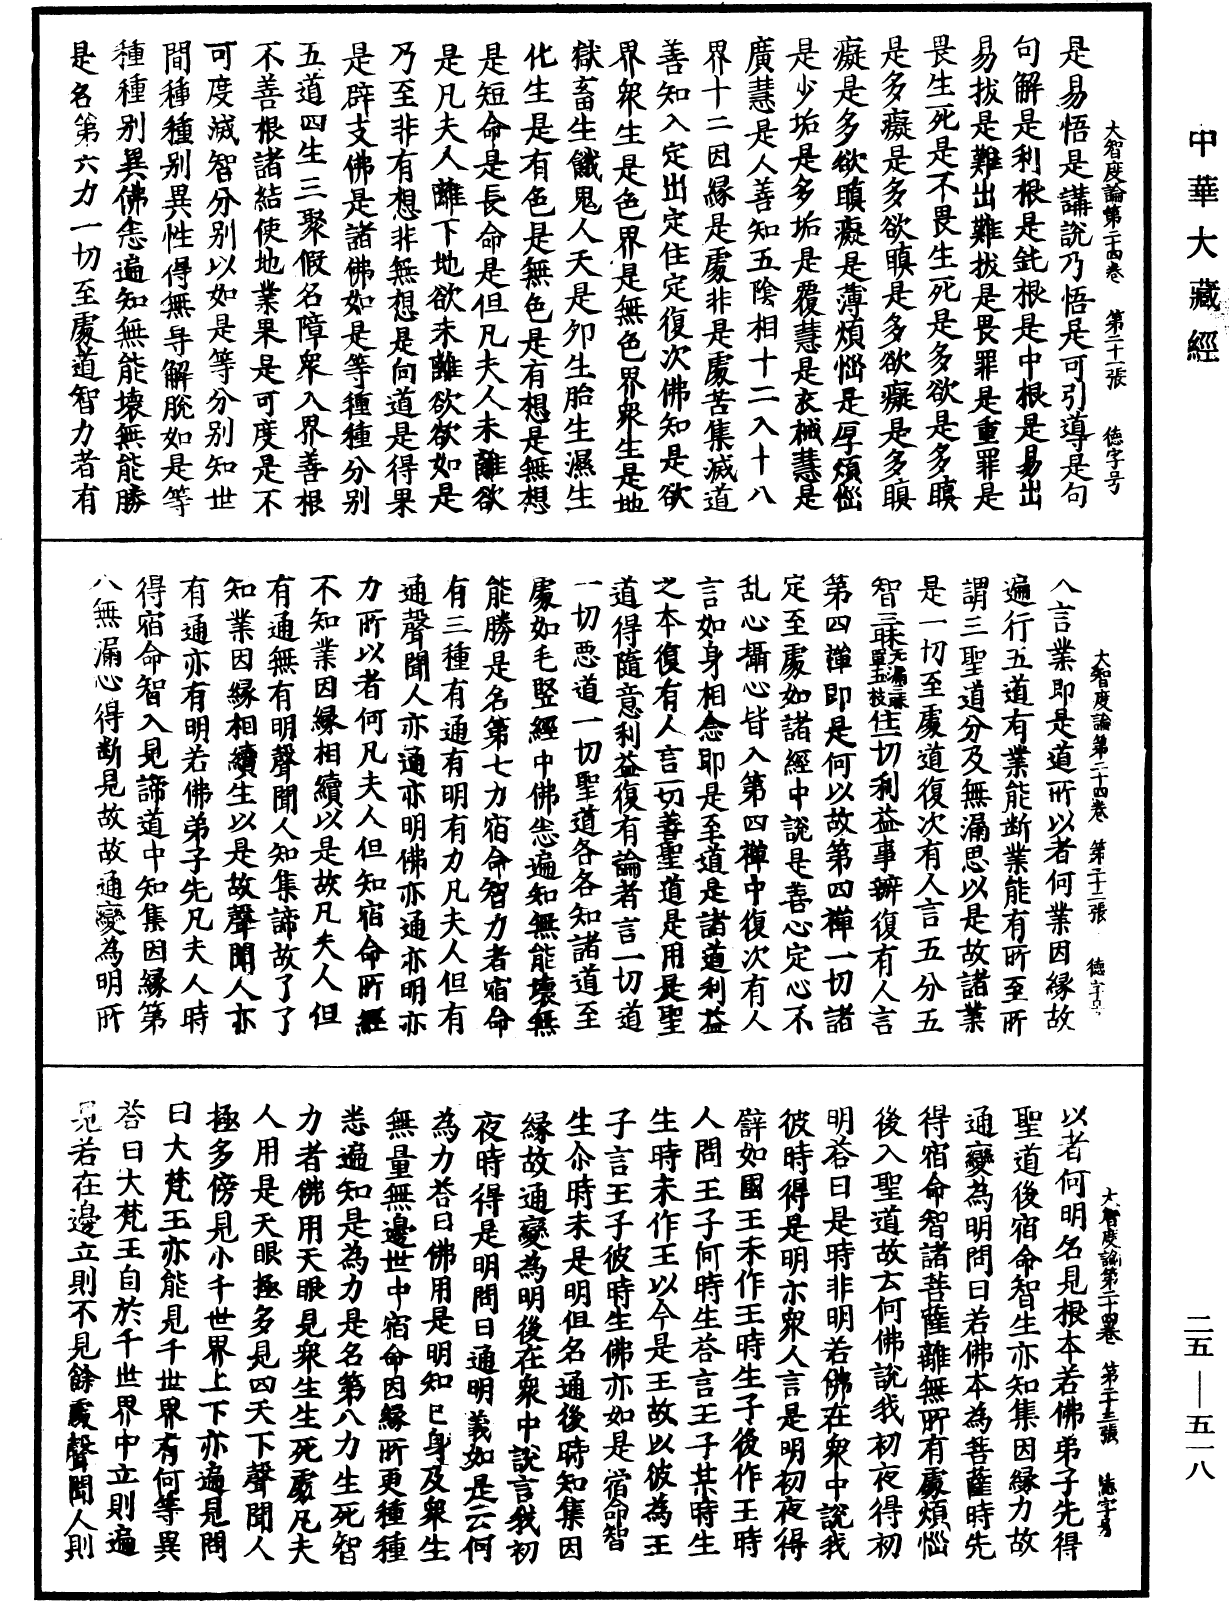 中華大藏經
大智度論第二十四卷 第二十一張 德字号
是易悟是講說乃悟是可引導是句
句解是利根是鈍根是中根是易出
易拔是難出難拔是畏罪是重罪是
畏生死是不畏生死是多欲是多瞋
是多癡是多欲瞋是多欲癡是多瞋
癡是多欲瞋癡是薄煩惱是厚煩惱
是少垢是多垢是覆慧是衣械慧是
廣慧是人善知五陰相十二入十八
界十二因緣是處非是處苦集滅道
善知入定出定住定復次佛知是欲
界眾生是色界是無色界眾生是地
獄畜生餓鬼人天是卵生胎生濕生
化生是有色是無色是有想是無想
是短命是長命是但凡夫人未離欲
是凡夫人離下地欲未離欲欲如是
乃至非有想非無想是向道是得果
是辟支佛是諸佛如是等種種分別
五道四生三聚假名障眾入界善根
不善根諸結使地業果是可度是不
可度滅智分別以如是等分別知世
間種種別異性得無导解脫如是等
種種別異佛悉遍知無能壞無能勝
是名第六力一切至處道智力者有
大智度論第二十四卷 第二十二張 德字号
人言業即是道所以者何業因緣故
遍行五道有業能斷業能有所至所
謂三聖道分及無漏思以是故諸業
是一切至處道復次有人言五分五
智三昧無漏三昧單五枝住一切利益事辦復有人言
第四禪即是何以故第四禪一切諸
定至處如諸經中說是善心定心不
乱心攝心皆入第四禪中復次有人
言如身相念即是至道是諸道利益
之本復有人言一切善聖道是用是聖
道得隨意利益復有論者言一切道
一切惡道一切聖道各各知諸道至
處如毛竪經中佛悉遍知無能壞無
能勝是名第七力宿命智力者宿命
有三種有通有明有力凡夫人但有
通聲聞人亦通亦明佛亦通亦明亦
力所以者何凡夫人但知宿命所經
不知業因緣相續以是故凡夫人但
有通無有明聲聞人知集諦故了了
知業因緣相續生以是故聲聞人亦
有通亦有明若佛弟子先凡夫人時
得宿命智入見諦道中知集因緣第
八無漏心得斷見故故通變為明所
大智度論第二十四卷 第二十三張 德字号
以者何明名見根本若佛弟子先得
聖道後宿命智生亦知集因緣力故
通變為明問曰若佛本為菩薩時先
得宿命智諸菩薩離無所有處煩惱
後入聖道故云何佛說我初夜得初
明荅曰是時非明若佛在眾中說我
彼時得是明亦眾人言是明初夜得
譬如國王未作王時生子後作王時
人問王子何時生荅言王子某時生
生時未作王以今是王故以彼為王
子言王子彼時生佛亦如是宿命智
生尒時未是明但名通後時知集因
緣故通變為明後在眾中說言我初
夜時得是明問曰通明義如是云何
為力荅曰佛用是明知己身及眾生
無量無邊世中宿命因緣所更種種
悉遍知是為力是名第八力生死智
力者佛用天眼見眾生生死處凡夫
人用是天眼極多見四天下聲聞人
極多傍見小千世界上下亦遍見問
曰大梵王亦能見千世界有何等異
荅曰大梵王自於千世界中立則遍
見若在邊立則不見餘處聲聞人則
二五——五一八